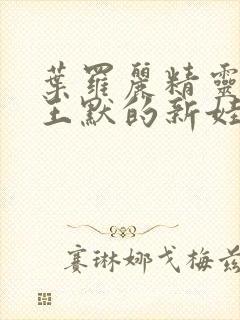 葉羅麗精靈
王默的新娃
賽琳娜戈梅茲